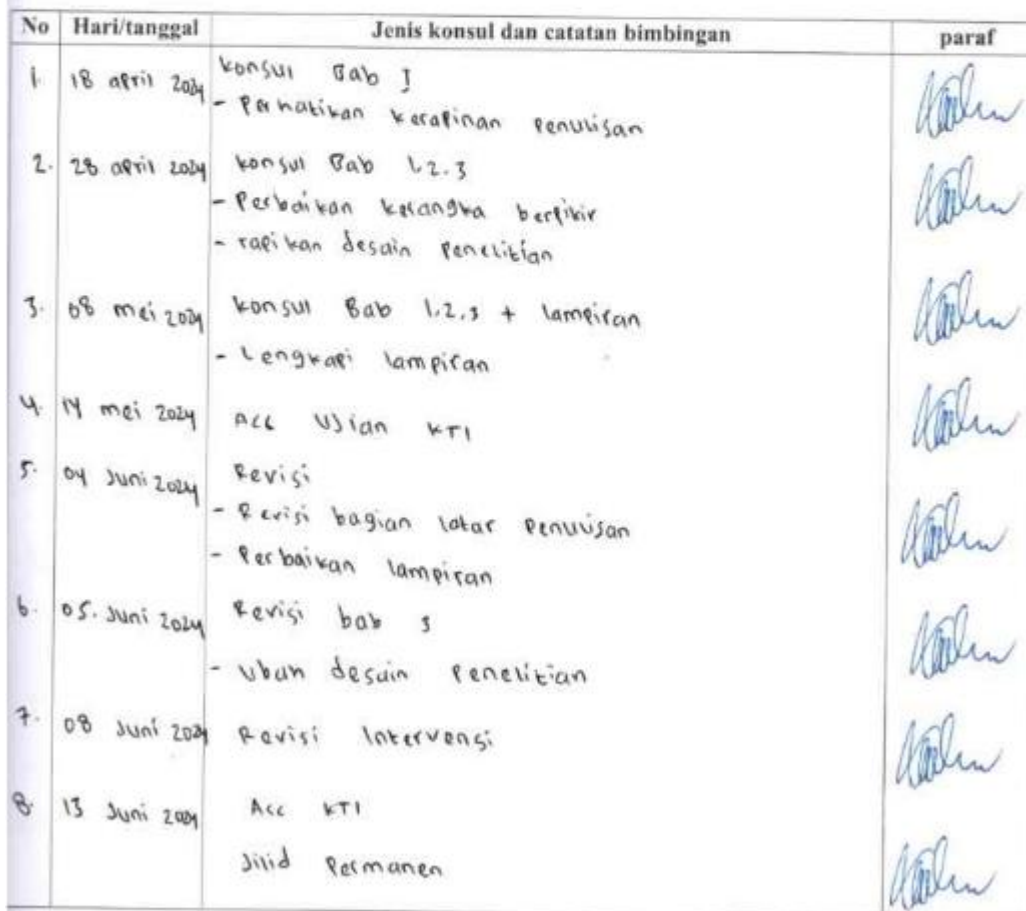 No Hari/tanggal Jenis konsul dan catatan bimbingan paraf
1. 18 april 2024 konsul Bab I
- Perhatikan kerapinan Penulisan
2. 28 april 2024 konsul Bab 1.2.3
- Perbaikan kerangka berpikir
- rapikan desain Penelitian
3. 08 mei 2024 konsul Bab 1.2.3 + lampiran
- Lengkapi lampiran
4. 14 mei 2024 Acc Ujian KTI
5. 04 Juni 2024 Revisi
- Revisi bagian latar Penulisan
- Perbaikan lampiran
6. 05. Juni 2024 Revisi bab 3
- Ubah desain Penelitian
7. 08 Juni 2024 Revisi Intervensi
8. 13 Juni 2024 Acc KTI
Jilid Permanen